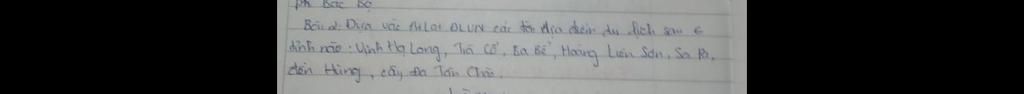 ph Bắc Bộ
Bài 2: Dựa vào Atlat ĐLVN các địa điểm du lịch sau ở
tỉnh nào: Vịnh Hạ Long, Trà Cổ, Ba Bể, Hoàng Liên Sơn, Sa Pa,
đền Hùng, cây đa Tân Trào.